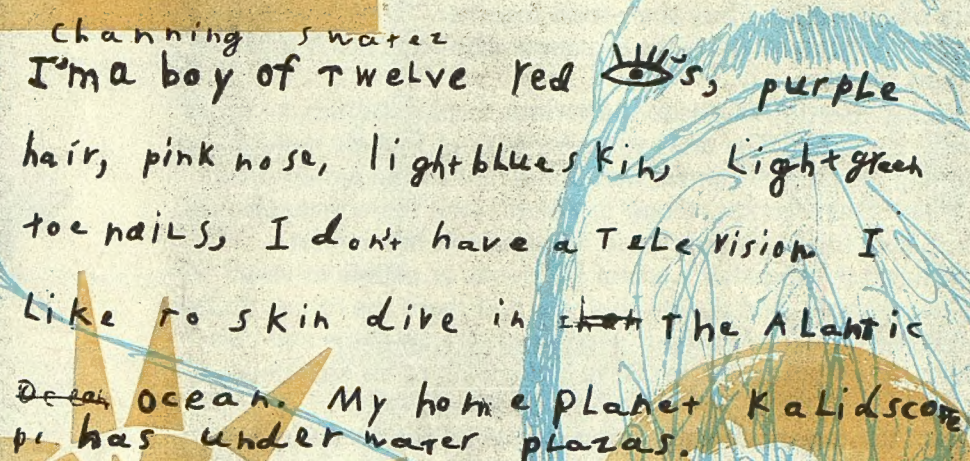 Channing Swatez
I'm a boy of Twelve red 's, purple
hair, pink nose, light blue skin, Light green
toe nails, I don't have a Television I
Like to skin dive in the ALantic
ocean. My home pLanet KaLidscope
has underwater plazas.